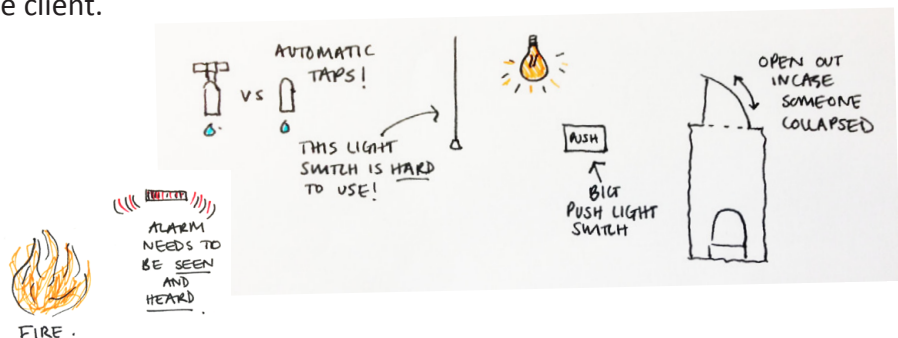 e client.
AUTOMATIC
TAPS!
VS
THIS LIGHT
SWITCH IS HARD
TO USE!
PUSH
BIG
PUSH LIGHT
SWITCH
OPEN OUT
INCASE
SOMEONE
COLLAPSED
ALARM
NEEDS TO
BE SEEN
AND
HEARD.
FIRE.